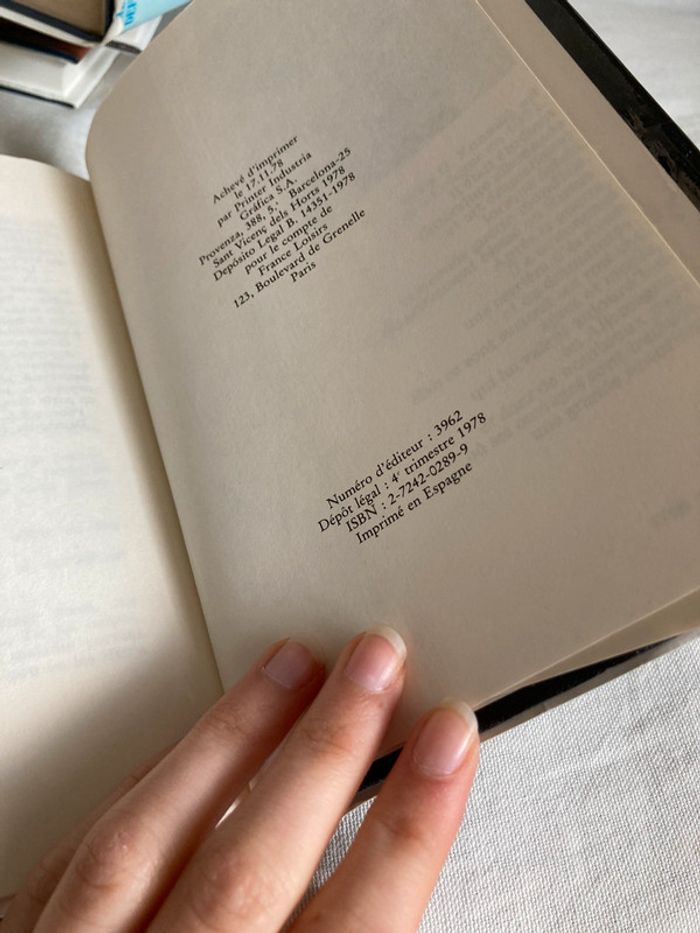 Achevé d'imprimer
le 17.11.78
par Printer Industria
Gráfica S.A.
Provenza, 388, 5.ª Barcelona-25
Sant Vicenç dels Horts 1978
Depósito Legal B. 14351-1978
pour le compte de
France Loisirs
123, Boulevard de Grenelle
Paris
Numéro d'éditeur : 3962
Dépôt légal : 4ᵉ trimestre 1978
ISBN : 2-7242-0289-9
Imprimé en Espagne